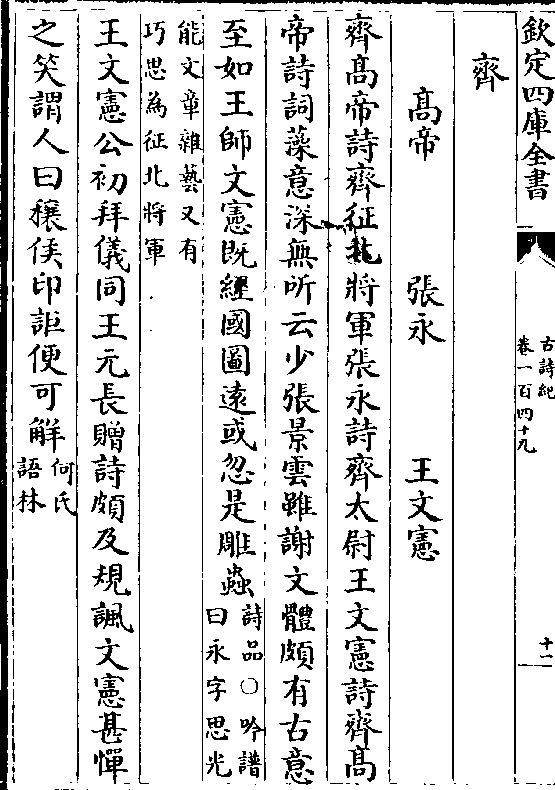 欽定四庫全書
古詩紀
卷一百四十九
十一
齊
高帝 張永 王文憲
齊高帝詩齊征北將軍張永詩齊太尉王文憲詩齊高
帝詩詞藻意深無所云少張景雲雖謝文體頗有古意
至如王師文憲既經國圖遠或忽是雕蟲詩品〇吟譜
曰永字思光
能文章雜藝又有
巧思為征北將軍
王文憲公初拜儀同王元長贈詩頗及規諷文憲甚憚
之笑謂人曰穰侯印詎便可解何氏
語林